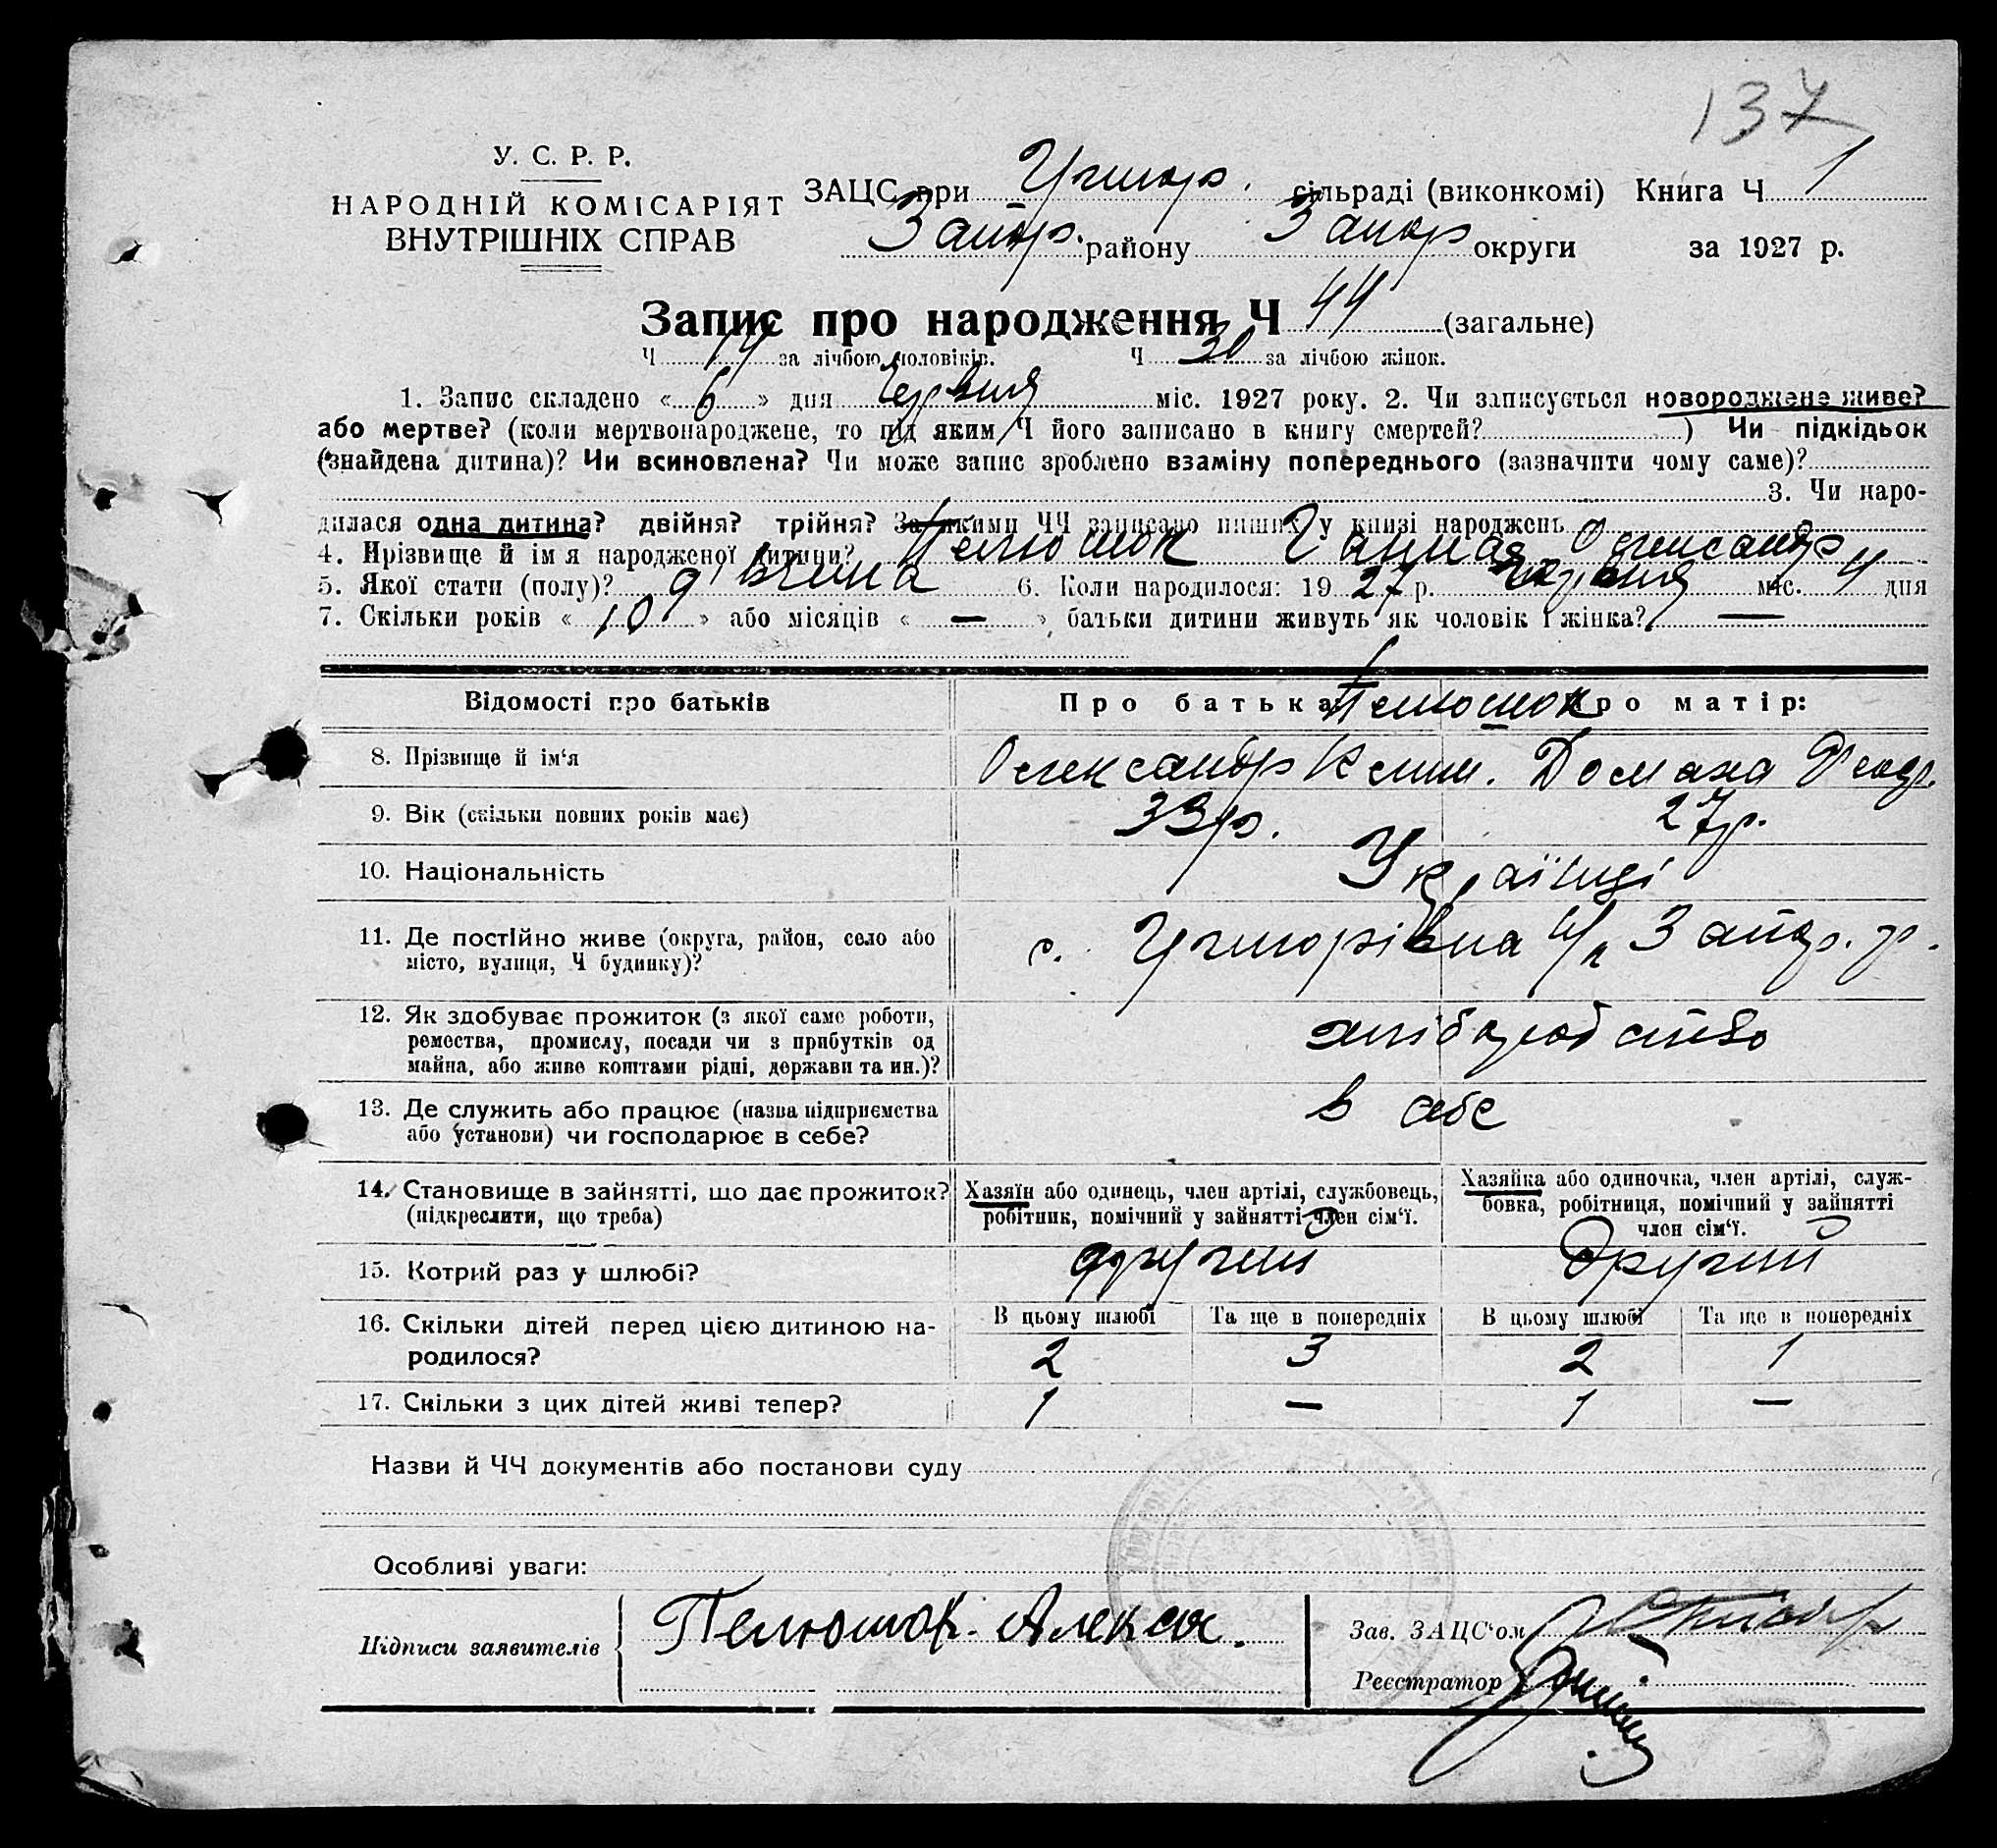 137
У. С. Р. Р.
НАРОДНІЙ КОМІСАРІЯТ
ВНУТРІШНІХ СПРАВ
ЗАЦС при сільраді (виконкомі) Книга Ч 1
Запор. району Запор округи за 1927 р.
Запис про народження Ч 44 (загальне)
Ч 14 за лічбою чоловіків. Ч 30 за лічбою жінок.
1. Запис складено « 6 » дня Червня міс. 1927 року. 2. Чи записується новороджене живе?
або мертве? (коли мертвонароджене, то під яким Ч його записано в книгу смертей? ) Чи підкідьок
(знайдена дитина)? Чи всиновлена? Чи може запис зроблено взаміну попереднього (зазначити чому саме)?
3. Чи наро-
дилася одна дитина? двійня? трійня? За якими ЧЧ записано инших у книзі народжень
4. Прізвище й ім'я народженої дитини? Пелюшок Ганна Олександр
5. Якої стати (полу)? дівчина 6. Коли народилося: 19 27 р. червня міс. 4 дня
7. Скільки років « 10 » або місяців « — » батьки дитини живуть як чоловік і жінка? —
Відомості про батьків Про батька Пелюшок Про матір:
8. Прізвище й ім'я Олександр Клим. Домаха Феодр.
9. Вік (скільки повних років має) 33 р. 27 р.
10. Національність Українці
11. Де постійно живе (округа, район, село або
місто, вулиця, Ч будинку)? с. Запор. р.
12. Як здобуває прожиток (з якої саме роботи,
ремества, промислу, посади чи з прибутків од
майна, або живе коштами рідні, держави та ин.)? хліборобство
13. Де служить або працює (назва підприємства
або установи) чи господарює в себе? в себе
14. Становище в зайнятті, що дає прожиток?
(підкреслити, що треба)
Хазяїн або одинець, член артілі, службовець,
робітник, помічний у зайнятті член сім'ї.
Хазяйка або одиночка, член артілі, служ-
бовка, робітниця, помічний у зайнятті
член сім'ї.
15. Котрий раз у шлюбі? другий Другий
16. Скільки дітей перед цією дитиною на-
родилося?
В цьому шлюбі Та ще в попередніх В цьому шлюбі Та ще в попередніх
2 3 2 1
17. Скільки з цих дітей живі тепер? 1 — 1 —
Назви й ЧЧ документів або постанови суду
Особливі уваги:
Підписи заявителів Пелюшок Алекса.
Зав. ЗАЦС'ом
Реєстратор